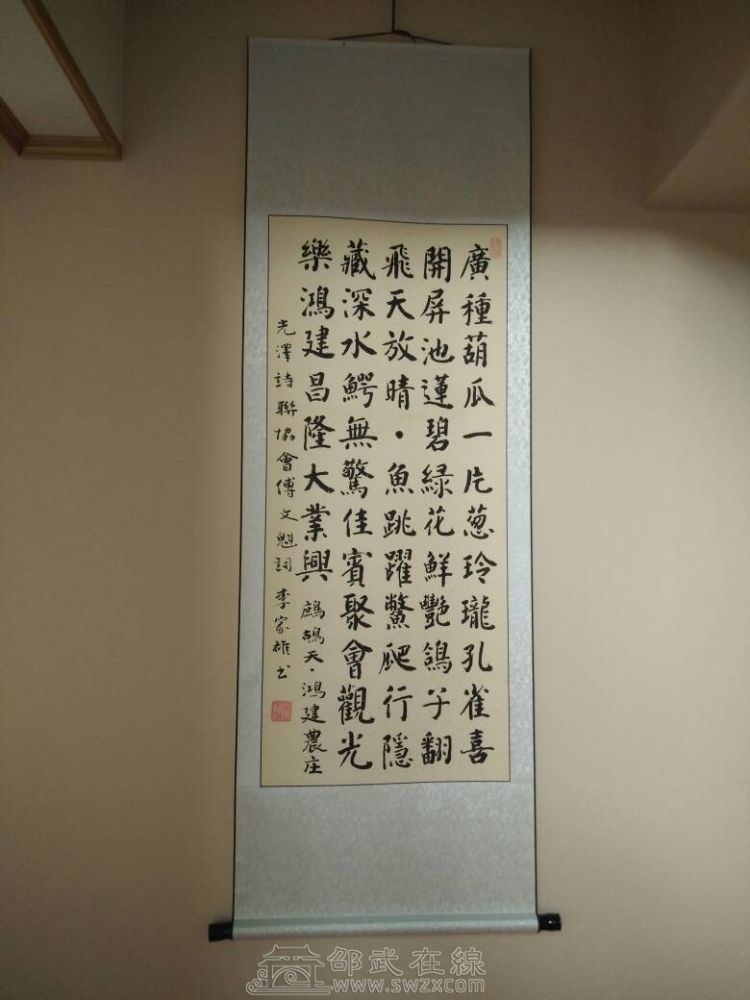 廣種葫瓜一片葱玲瓏孔雀喜
開屏池蓮碧綠花鮮艷鴿子翻
飛天放晴·魚跳躍鱉爬行隱
藏深水鰐無驚佳賓聚會觀光
樂鴻建昌隆大業興 鷓鴣天·鴻建農庄
光澤詩聯協會傅文魁詞 李家雄书
邵武在線
www.swzx.com